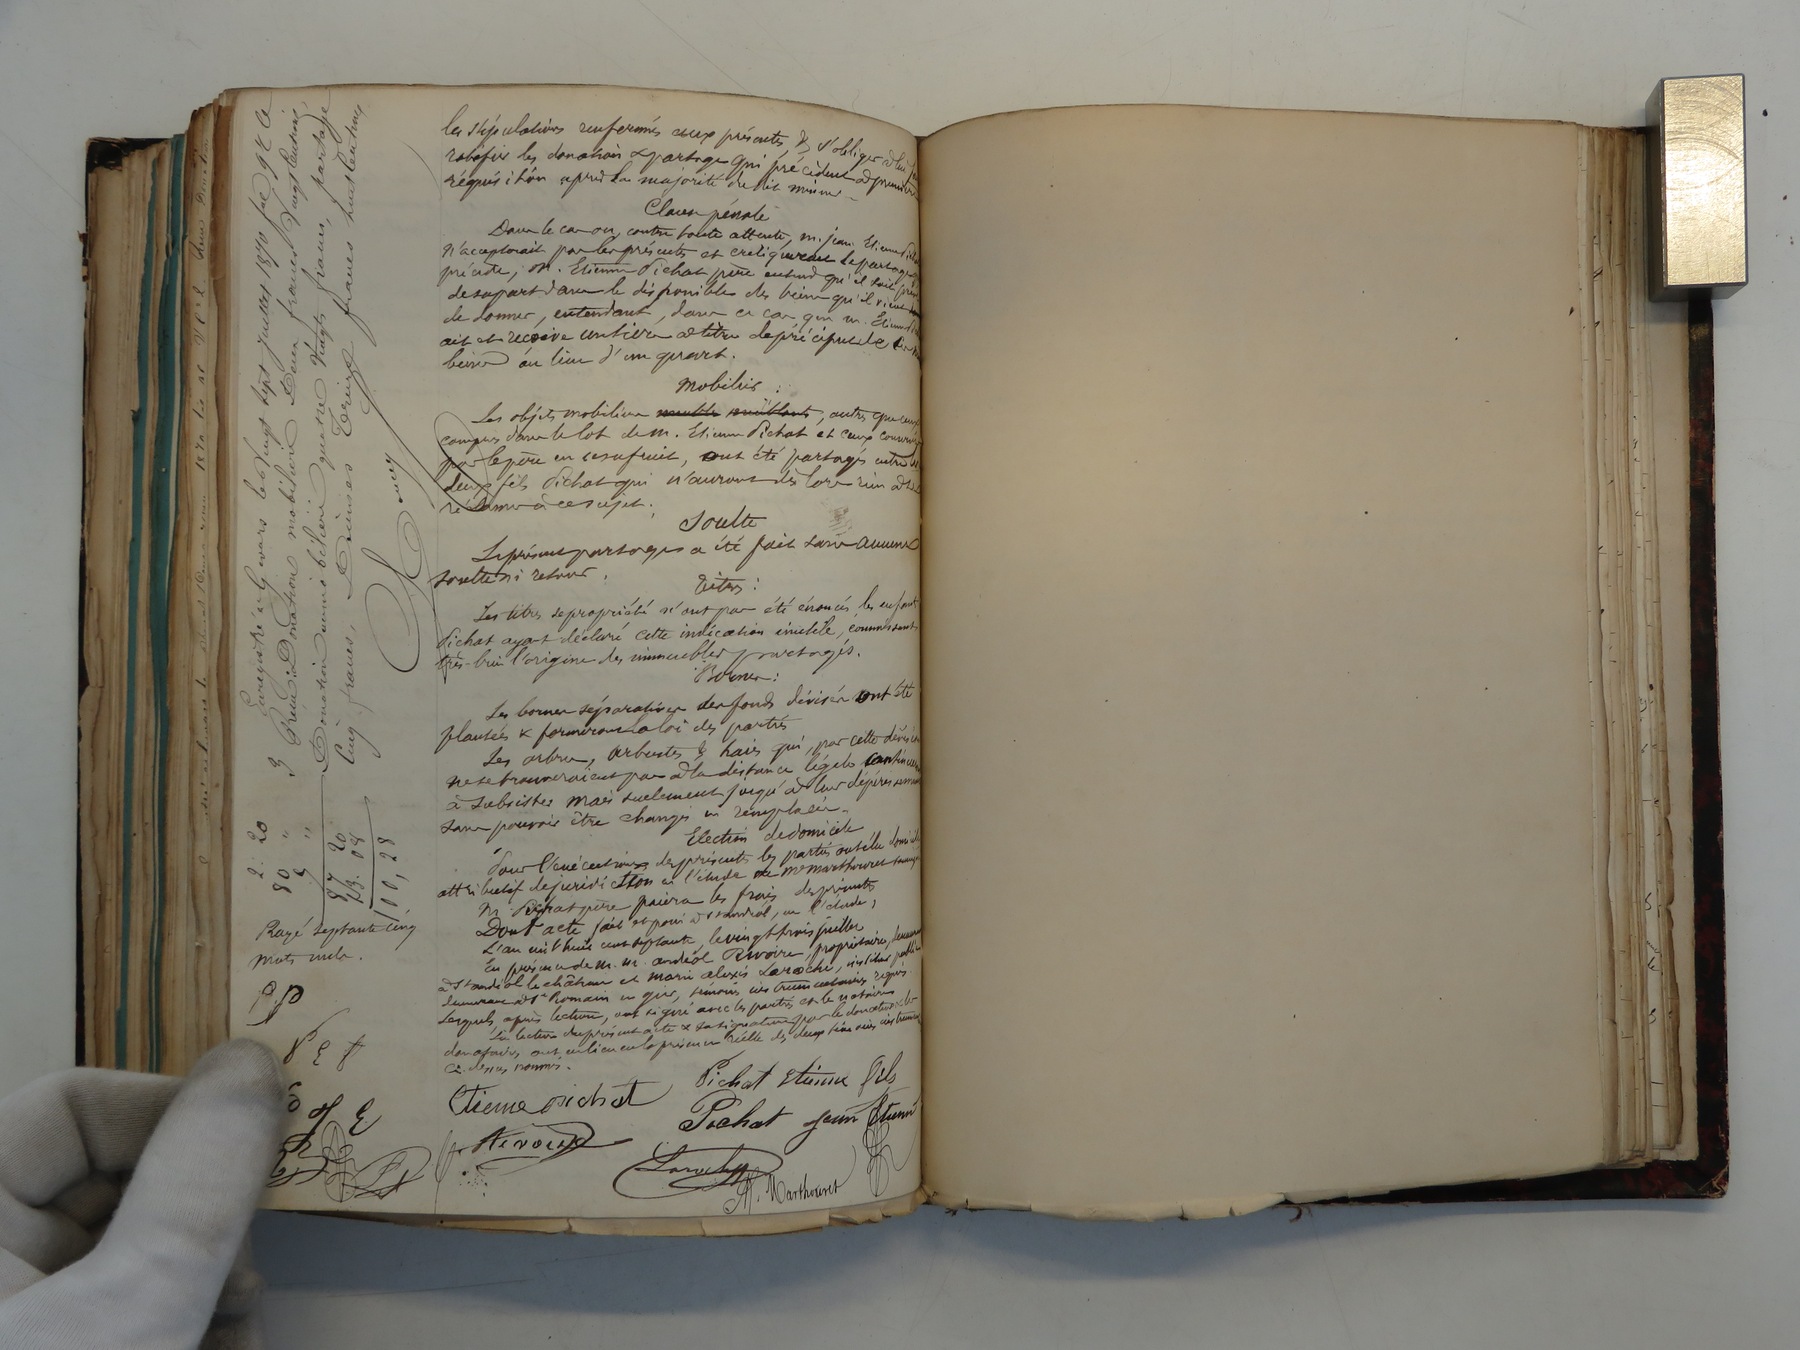 les stipulations renfermés aux présents, & s'obliger à les faire
ratifier les donation & partage qui précèdent à première
réquisition après la majorité du dit mineur
Clause pénale
Dans le cas ou, contre toute attente, m. jean Etienne Pichat
n'accepterait pas les présents et critiquerait le partage qui
précède, m. Etienne Pichat père entend qu'il soit privé
de sa part dans le disponible des biens qu'il vient
de donner, entendant, dans ce cas que m. Etienne
ait et reçoive un tiers à titre de préciput de ses
biens au lieu d'un quart.
Mobilier :
Les objets mobiliers meuble meublants, autres que ceux
compris dans le lot de m. Etienne Pichat et ceux conservés
par le père en usufruit, ont été partagés entre les
deux fils Pichat qui n'auront dès lors rien à se
réclamer à ce sujet.
Soulte
Le présent partage a été fait sans aucune
soulte ni retour.
Titres :
Les titres de propriété n'ont pas été énoncés, les enfants
Pichat ayant déclaré cette indication inutile, connaissant
très-bien l'origine des immeubles partagés.
Bornes :
Les bornes séparatives des fonds divisés ont été
plantées & formeront la loi des partis
Les arbres, arbustes & haies qui, par cette division
ne se trouveraient pas à la distance légale continueront
à subsister mais seulement jusqu'à leur dépérissement
sans pouvoir être changés ni remplacés.
Election de domicile
Pour l'exécution des présents les partis ont élu domicile
attributif de juridiction en l'étude de me marthouret
M. Pichat père paiera les frais des présents
Dont acte fait et passé à st andéol, en l'étude,
L'an mil huit cent septante, le vingt trois juillet
En présence de m. m. andéol Rivoire, propriétaire, demeurant
à st andéol le château et marie alexis Laroche, instituteur public
demeurant à St Romain en gier, témoins instrumentaires requis
Lesquels, après lecture, ont signé avec les partis et le notaire
La lecture du présent acte & la signature par le donateur & les
donataires ont eu lieu en la présence réelle des deux témoins instrumentaires
ci-dessus nommés.
Etienne pichat
Pichat Etienne fils
Pichat jean Etienne
Rivoire
Laroche
Marthouret
Enregistré à Givors le Vingt sept juillet 1870 fol 94
Donation mobilière Deux francs Vingt centimes
Donation immobilière quatre Vingts francs, partage
Cinq francs, Décimes Treize francs huit centimes
2. 20
80 "
5 "
87 20
13. 08
100, 28
Rayé septante cinq
mots nuls.
P. P
P E f
P J E